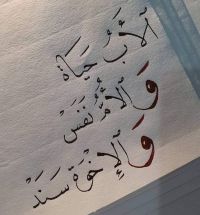 الأبُ حَيَاة
وَالأمُّ نَفَسْ
وَالإخْوَة سَنَدْ